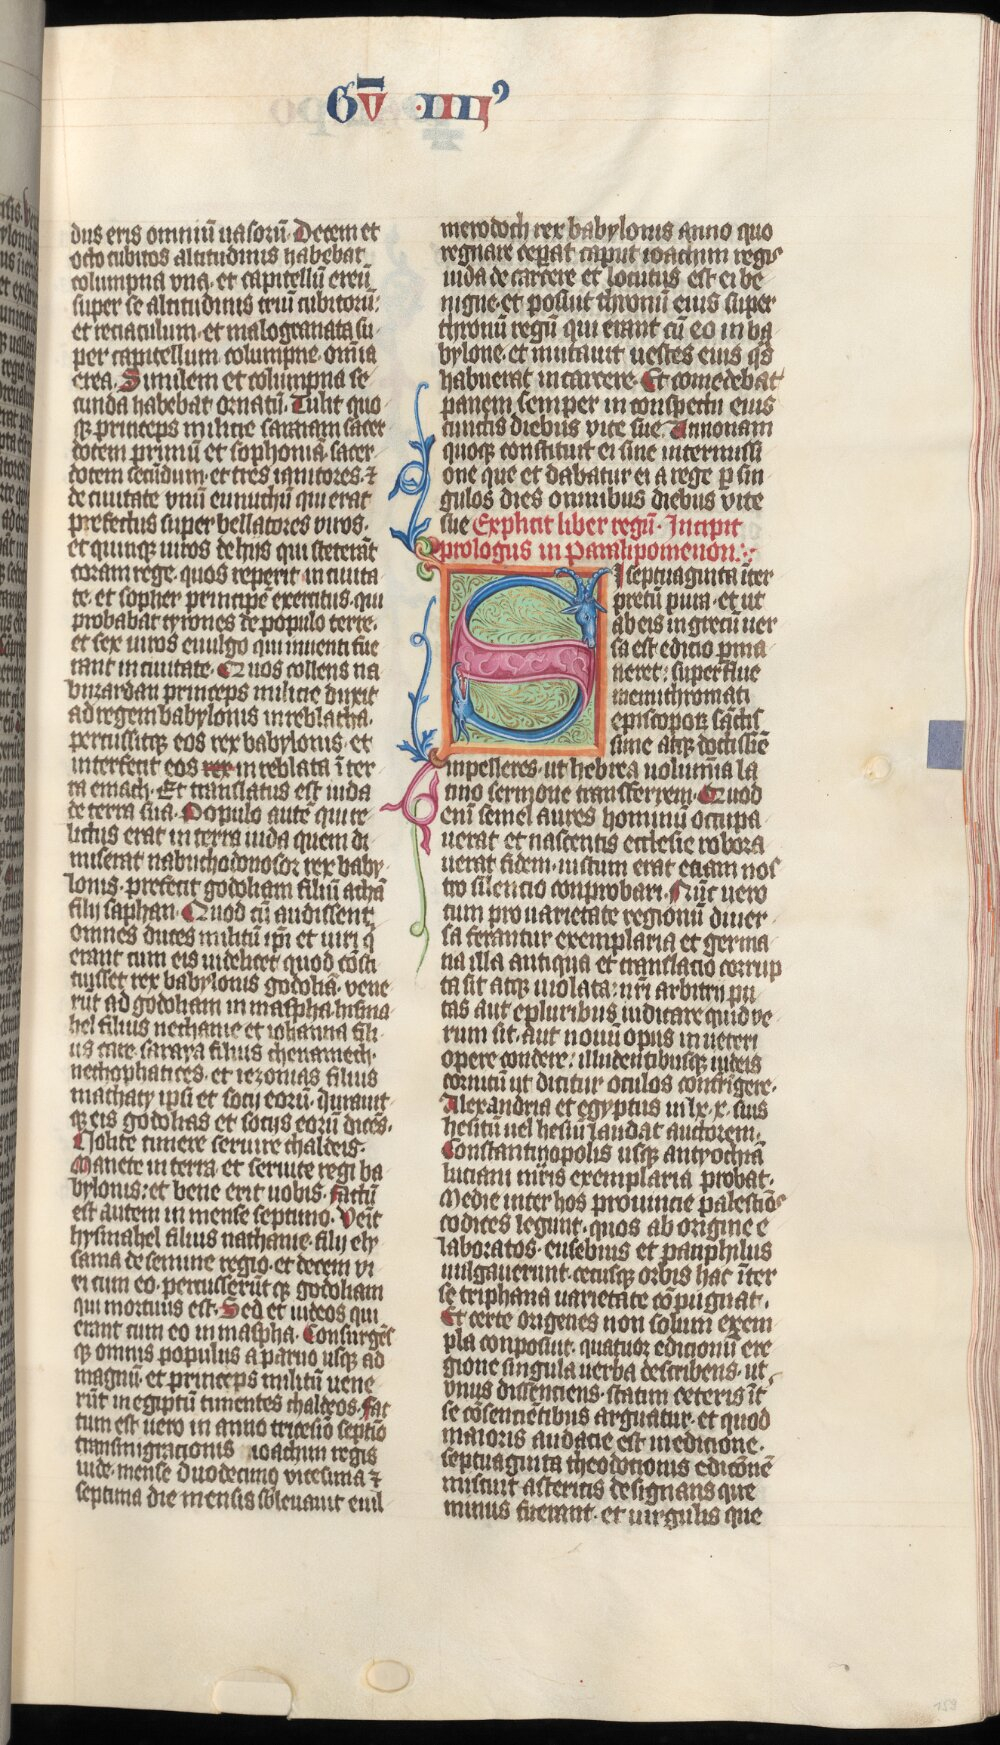 Gū ·IIII⁹
dus eris omniū uasorū. Decem et
octo cubitos altitudinis habebat
columpna vna. et capitellū ereū
super se altitudinis triū cubitorū:
et reciaculum. et malogranata su
per capitellum columpne. omīa
erea. Similem et columpna se
cunda habebat ornatū. Tulit quo
qꝫ princeps milicie saraiam sacer
dotem primū et sophoniā. sacer
dotem secūdum. et tres ianitores. ⁊
de ciuitate vnū eunuchū qui erat
prefectus super bellatores viros.
et quinqꝫ viros de hijs qui steterāt
coram rege. quos reperit in ciuita
te. et sopher principē exercitus. qui
probabat tyrones de populo terre.
et sex uiros euulgo qui inuenti fue
rant in ciuitate. Quos tollens na
buzardan princeps milicie duxit
ad regem babylonis in reblatha.
percussitqꝫ eos rex babylonis. et
interfecit eos rex in reblata ī ter
ra emath. Et translatus est iuda
de terra sua. Populo autē qui re
lictus erat in terra iuda quem di
miserat nabuchodonosor rex baby
lonis. prefecit godoliam filiū athā
filij saphan. Quod cū audissent
omnes duces militū ip̄i et uiri q̄
erant cum eis uidelicet quod cōsti
tuisset rex babylonis godoliā. vene
rūt ad godoliam in maspha. hisma
hel filius nethanie et iohanna fili
us care. saraya filius thenameth.
nethophatites. et iezonias filius
machaty ipsi et socij eorū. Iurauit
qꝫ eis godolias et socijs eorū dicēs.
Nolite timere seruire chaldeis.
Manete in terra et seruite regi ba
bylonis: et bene erit uobis. factū
est autem in mense septimo. Venit
hysmahel filius nathanie. filij ely
sama de semine regio. et decem vi
ri cum eo. percusserūt qꝫ godoliam
qui mortuus est. Sed et iudeos qui
erant cum eo in maspha. Consurgēs
qꝫ omnis populus a paruo usqꝫ ad
magnū. et princeps militū uene
rūt in egiptū timentes chaldeos. fac
tum est vero in anno tricesīo septīo
transmigracionis ioachim regis
iude. mense duodecimo vicesima ⁊
septima die mensis sbleuauit euil
merodoch rex babylonis anno quo
regnare ceperat caput ioachim regis
iuda de carcere et locutus est ei be
nigne. et posuit thronū eius super
thronū regū qui erant cū eo in ba
bylone. et mutauit uestes eius qd̄
habuerat in carcere. Et comedebat
panem semper in conspectu eius
cunctis diebus vite sue. Annonam
quoqꝫ constituit ei sine intermissi
one que et dabatur ei a rege ꝑ sin
gulos dies omnibus diebus vite
sue Explicit liber regū. Incipit
prologus in Paralipomenon:·
SI septuaginta īter
pretū pura. et ut
ab eis in grecū uer
sa est editio ꝑma
neret: superflue
me mi chromati
episcopoꝝ sāctiss̄
sime atqꝫ doctissīe
inpelleres. ut hebrea uolumīa la
tino sermone transferrem. Quod
enī semel aures hominū occupa
uerat et nascentis ecclesie robora
uerat fidem. iustum erat etiam nos
tro silencio conprobari. Nūc vero
cum pro uarietate regionū diuer
sa ferantur exemplaria et germa
na illa antiqua et translacio corrup
ta sit atqꝫ uiolata: nr̄i arbitrij pu
tas aut epluribus iudicare quid ve
rum sit. aut nouū opus in ueteri
opere condere: illudentibusqꝫ iudeis
cornicū ut dicitur oculos configere.
Alexandria et egyptus in lx.x. suis
hesitū uel hesiū laudat auctorem.
Constantinopolis usqꝫ antyochiā
luciani m̄ris exemplaria probat.
Medie inter hos prouincie palestiōs
codices legunt. quos ab origine e
laboratos. eusebius et panphilus
uulgauerunt. totusqꝫ orbis hac īter
se triphana uarietate cōpugnat.
Et certe origenes non solum exem
pla conposuit. quatuor edicionū ere
gione singula uerba describens. ut
vnus dissenciens. statim ceteris īt
se cōsenciētibus arguatur. et quod
maioris audacie est in edicione.
septuaginta theodotionis edicōnē
miscuit astericis designans que
minus fuerant. et uirgulis que
159